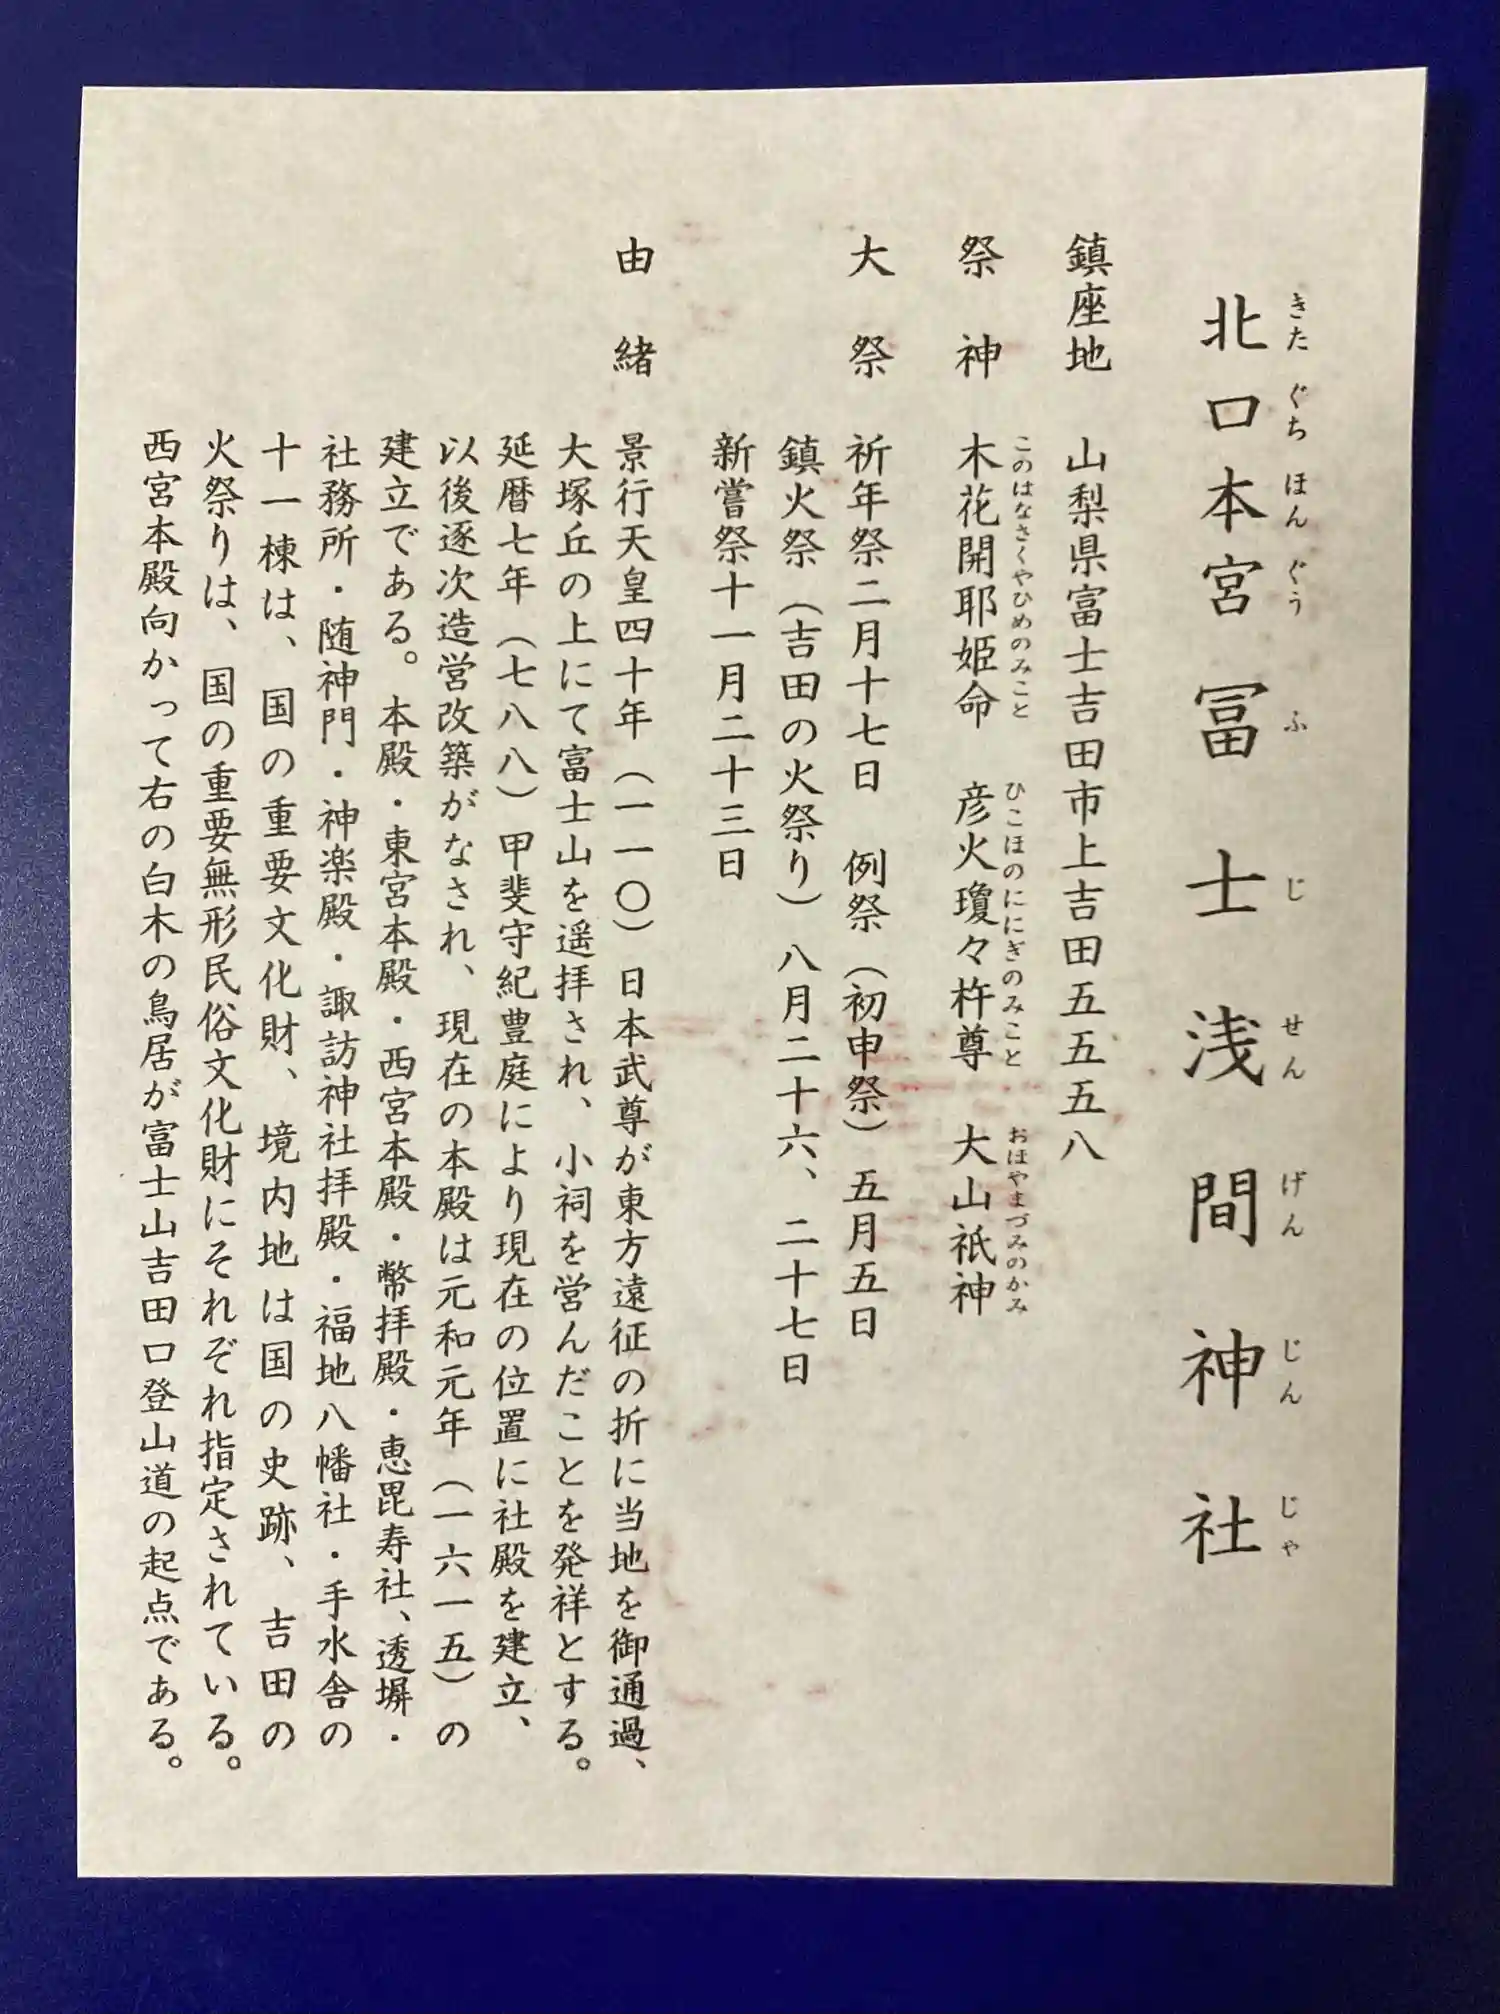 北口本宮冨士浅間神社
きたぐちほんぐうふじせんげんじんじゃ
鎮座地 山梨県富士吉田市上吉田五五五八
祭神 木花開耶姫命 彦火瓊々杵尊 大山祇神
このはなさくやひめのみこと ひこほのににぎのみこと おほやまづみのかみ
大祭 祈年祭二月十七日 例祭（初申祭）五月五日
鎮火祭（吉田の火祭り）八月二十六、二十七日
新嘗祭十一月二十三日
由緒 景行天皇四十年（一一〇）日本武尊が東方遠征の折に当地を御通過、
大塚丘の上にて富士山を遥拝され、小祠を営んだことを発祥とする。
延暦七年（七八八）甲斐守紀豊庭により現在の位置に社殿を建立、
以後逐次造営改築がなされ、現在の本殿は元和元年（一六一五）の
建立である。本殿・東宮本殿・西宮本殿・幣拝殿・恵毘寿社、透塀・
社務所・随神門・神楽殿・諏訪神社拝殿・福地八幡社・手水舎の
十一棟は、国の重要文化財、境内地は国の史跡、吉田の
火祭りは、国の重要無形民俗文化財にそれぞれ指定されている。
西宮本殿向かって右の白木の鳥居が富士山吉田口登山道の起点である。